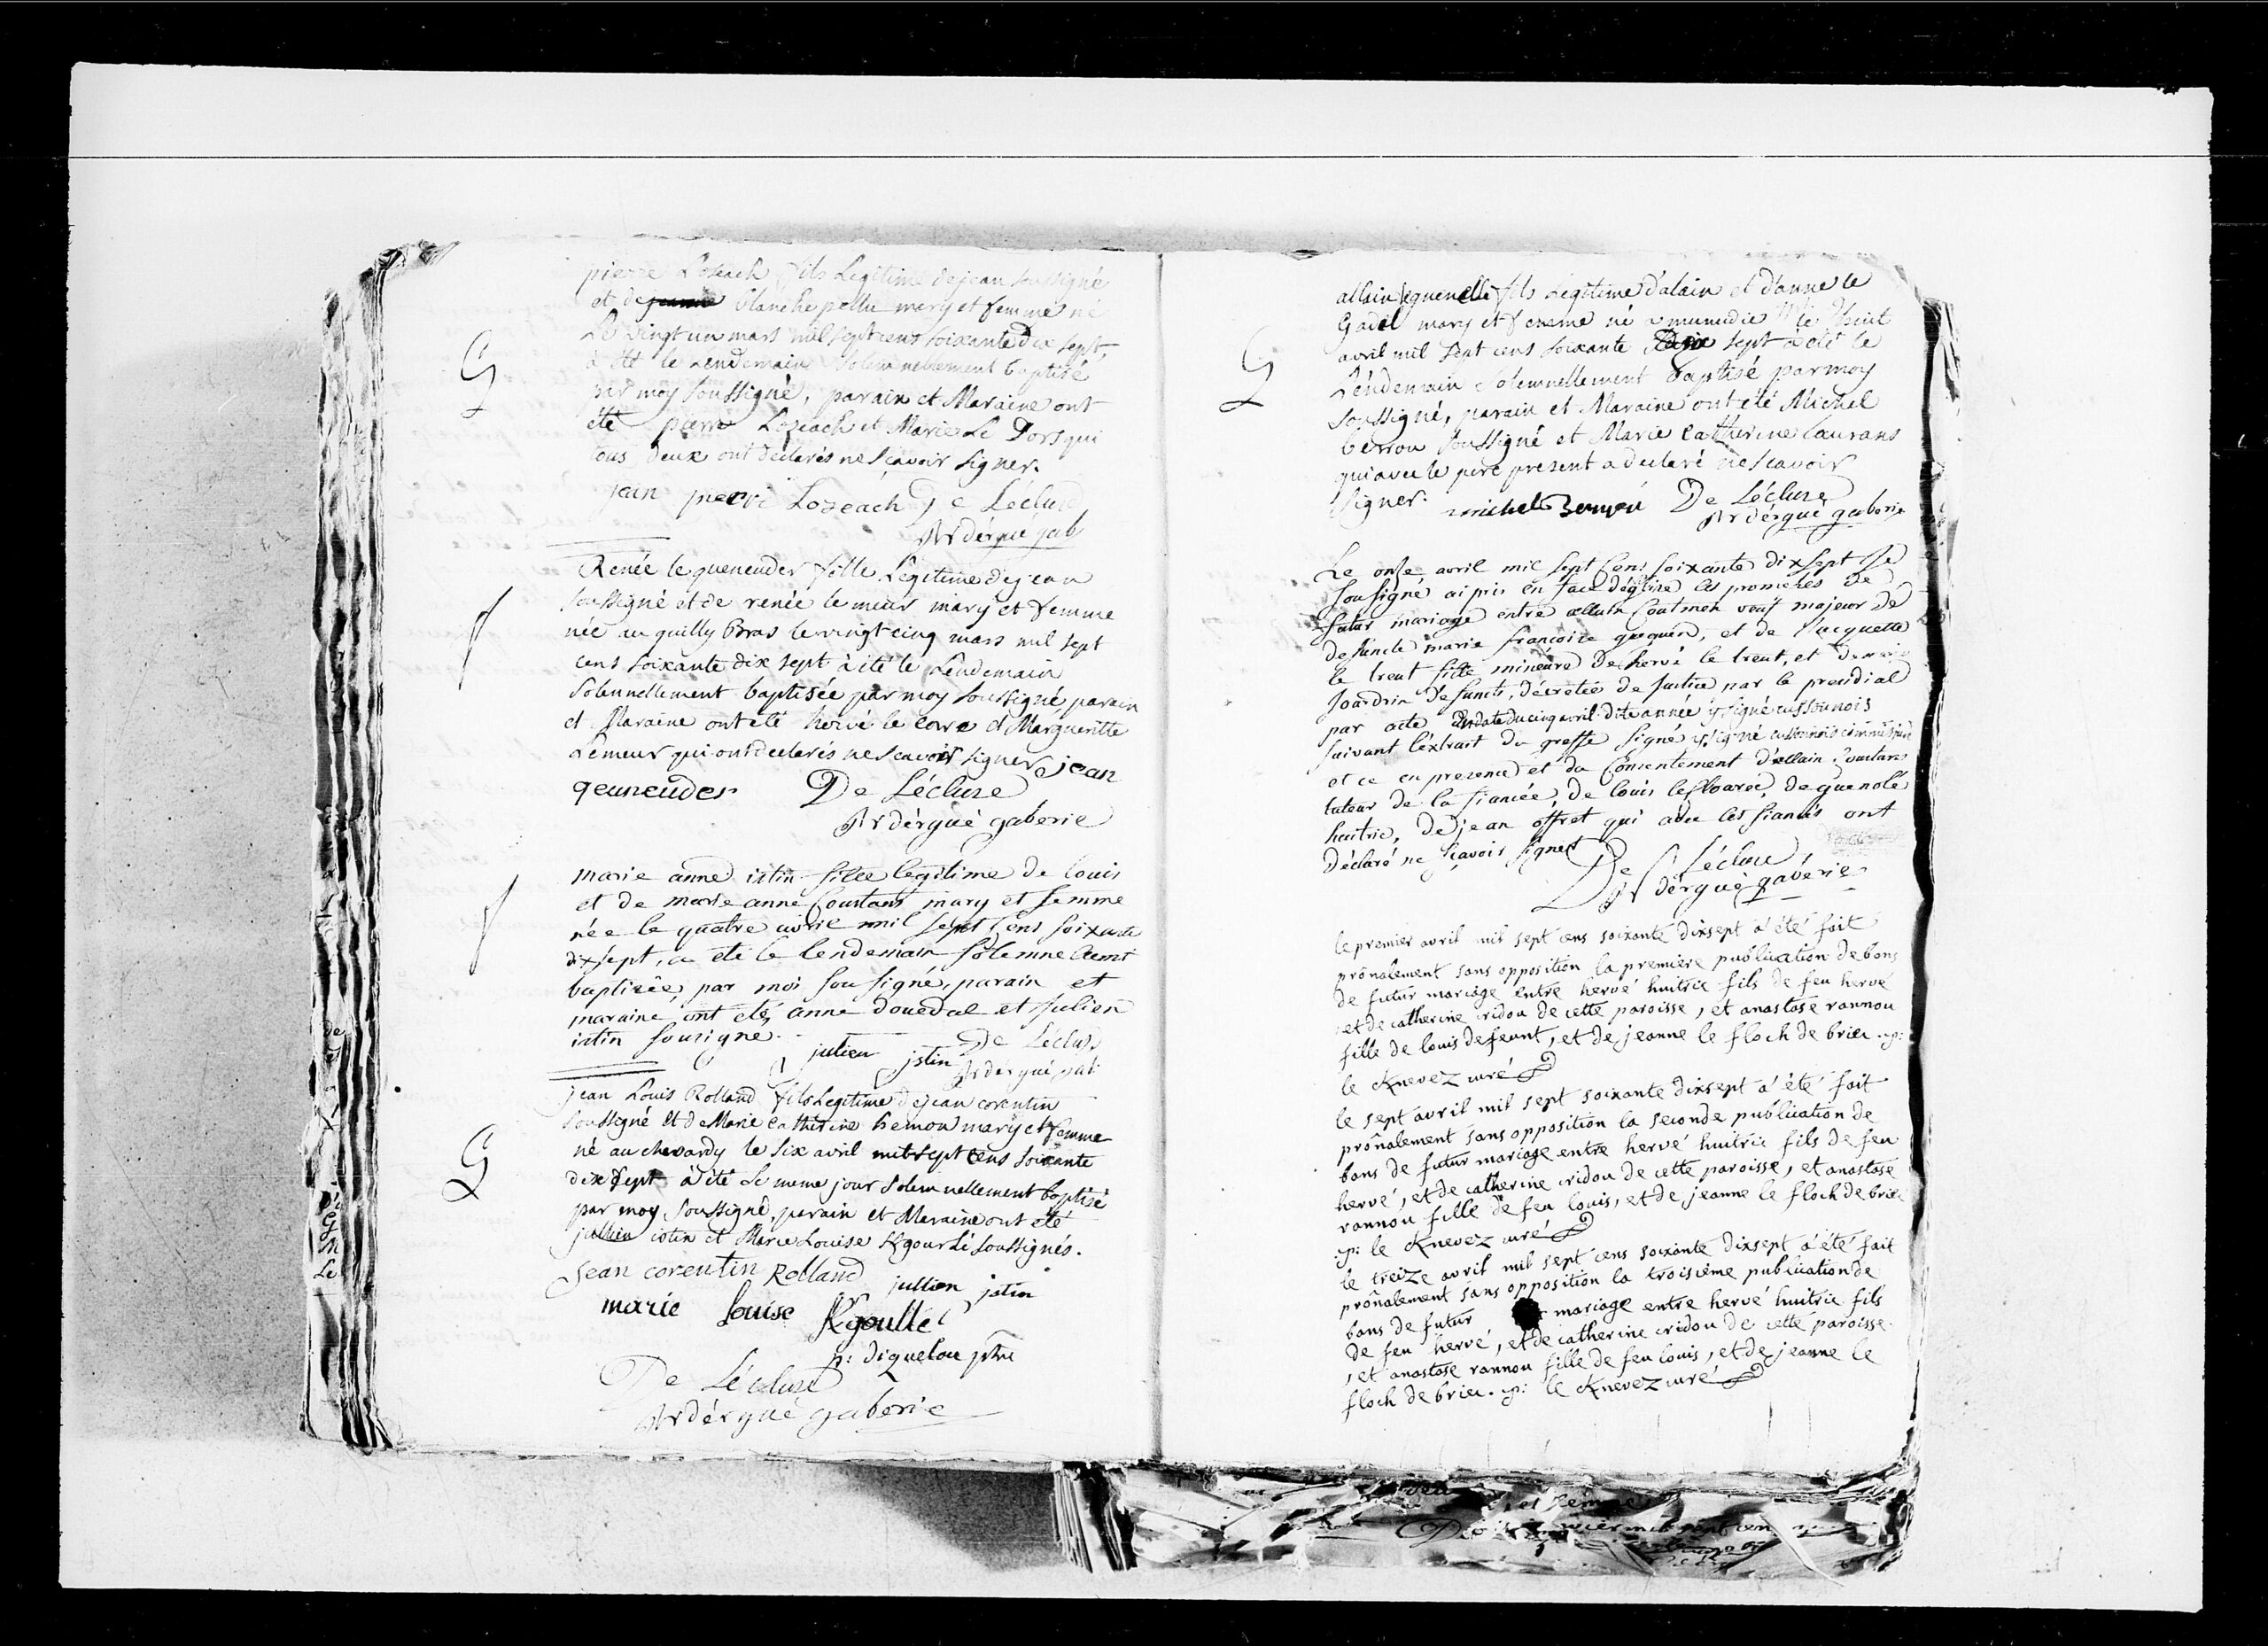 pierre Lozeach fils Legitime de jean soussigné
et de blanche pellu mary et femme né
Le vingt un mars mil sept cens soixante dix sept,
à été le Lendemain solemnellement baptisé
par moy soussigné, parain et Maraine ont
été pierre Lozeach et Marie Le Dors qui
tous deux ont déclarés ne sçavoir signer.
jean pierre Lozeach De Lécluse
Rr d'ergué gab
G
Renée le queneuder fille Légitime de jean
soussigné et de renée le meur mary et femme
née au quilly Bras le vingt-cinq mars mil sept
cens soixante dix sept à été le Lendemain
solennellement baptisée par moy soussigné, parain
et Maraine ont été hervé le corre et Margueritte
Lemeur qui ont declarés ne scavoir signer jean
qeuneuder De Lécluse
Rr d'érgué gaberie
f
marie anne istin fille legitime de louis
et de marie anne Coustans mary et femme
née le quatre avril mil sept cens soixante
dix sept, a été le lendemain solemnellemt
baptisée, par moi sousigné, parain et
maraine ont été, anne douedal et julien
istin sousigne.
julien jstin De Lécluse
Rr d'ergué gab
f
jean Louis Rolland fils Legitime de jean corentin
soussigné et de Marie catherine hemon mary et femme
né au chevardy le six avril mil sept cens soixante
dix sept à été le meme jour solemnellement baptisé
par moy soussigné, parain et Maraine ont été
jullien istin et Marie Louise Kgourlé soussignés.
jean corentin Rolland jullien jstin
marie louise Kgoulle
p: diquelou ptre
De Lécluse
Rr d'érgué gaberie
G
allain quenelle fils Légitime d'alain et d'anne le
Gadal mary et femme né a munudic le huit
avril mil sept cens soixante dix sept à été le
Lendemain solemnellement baptisé par moy
soussigné, parain et Maraine ont été Michel
berrou soussigné et Marie Catherine Laurans
qui avec le pere present a declaré ne scavoir
signer. michel De Lécluse
Rr d'érgué gaberie
G
Le onse avril mil sept cens soixante dix sept je
sousigné ai pris en face d'église les promesses de
futur mariage entre allain Coatmen veuf majeur de
defuncte marie françoise queguen, et de jacquette
le treut fille mineure de hervé le treut, et de marie
jourdrin defuncts, décrétée de justice par le presidial
par acte en date du cinq avril dite année y signé cussonnois
suivant l'extrait du greffe signé
et ce en presence et du consentement d'allain
tuteur de la fiancée, de louis le floarec, de guenolé
huitric, de jean offret qui avec les fiancés ont
Déclaré ne sçavoir signer
De Lécluse
Rr d'érgué gabérie
le premier avril mil sept cens soixante dixsept a été fait
prônalement sans opposition la premiere publication de bans
de futur mariage entre hervé huitric fils de feu hervé
et de catherine cridou de cette paroisse, et anastase rannou
fille de louis defeunt, et de jeanne le floch de briec. p:
le Knevez curé
le sept avril mil sept soixante dixsept a été fait
prônalement sans opposition la seconde publication de
bans de futur mariage entre hervé huitric fils de feu
hervé, et de catherine cridou de cette paroisse, et anastase
rannou fille de feu louis, et de jeanne le floch de briec
p: le Knevez curé
le treize avril mil sept cens soixante dixsept a été fait
prônalement sans opposition la troisième publication de
bans de futur mariage entre hervé huitric fils
de feu hervé, et de catherine cridou de cette paroisse
, et anastase rannou fille de feu louis, et de jeanne le
floch de briec. p: le Knevez curé